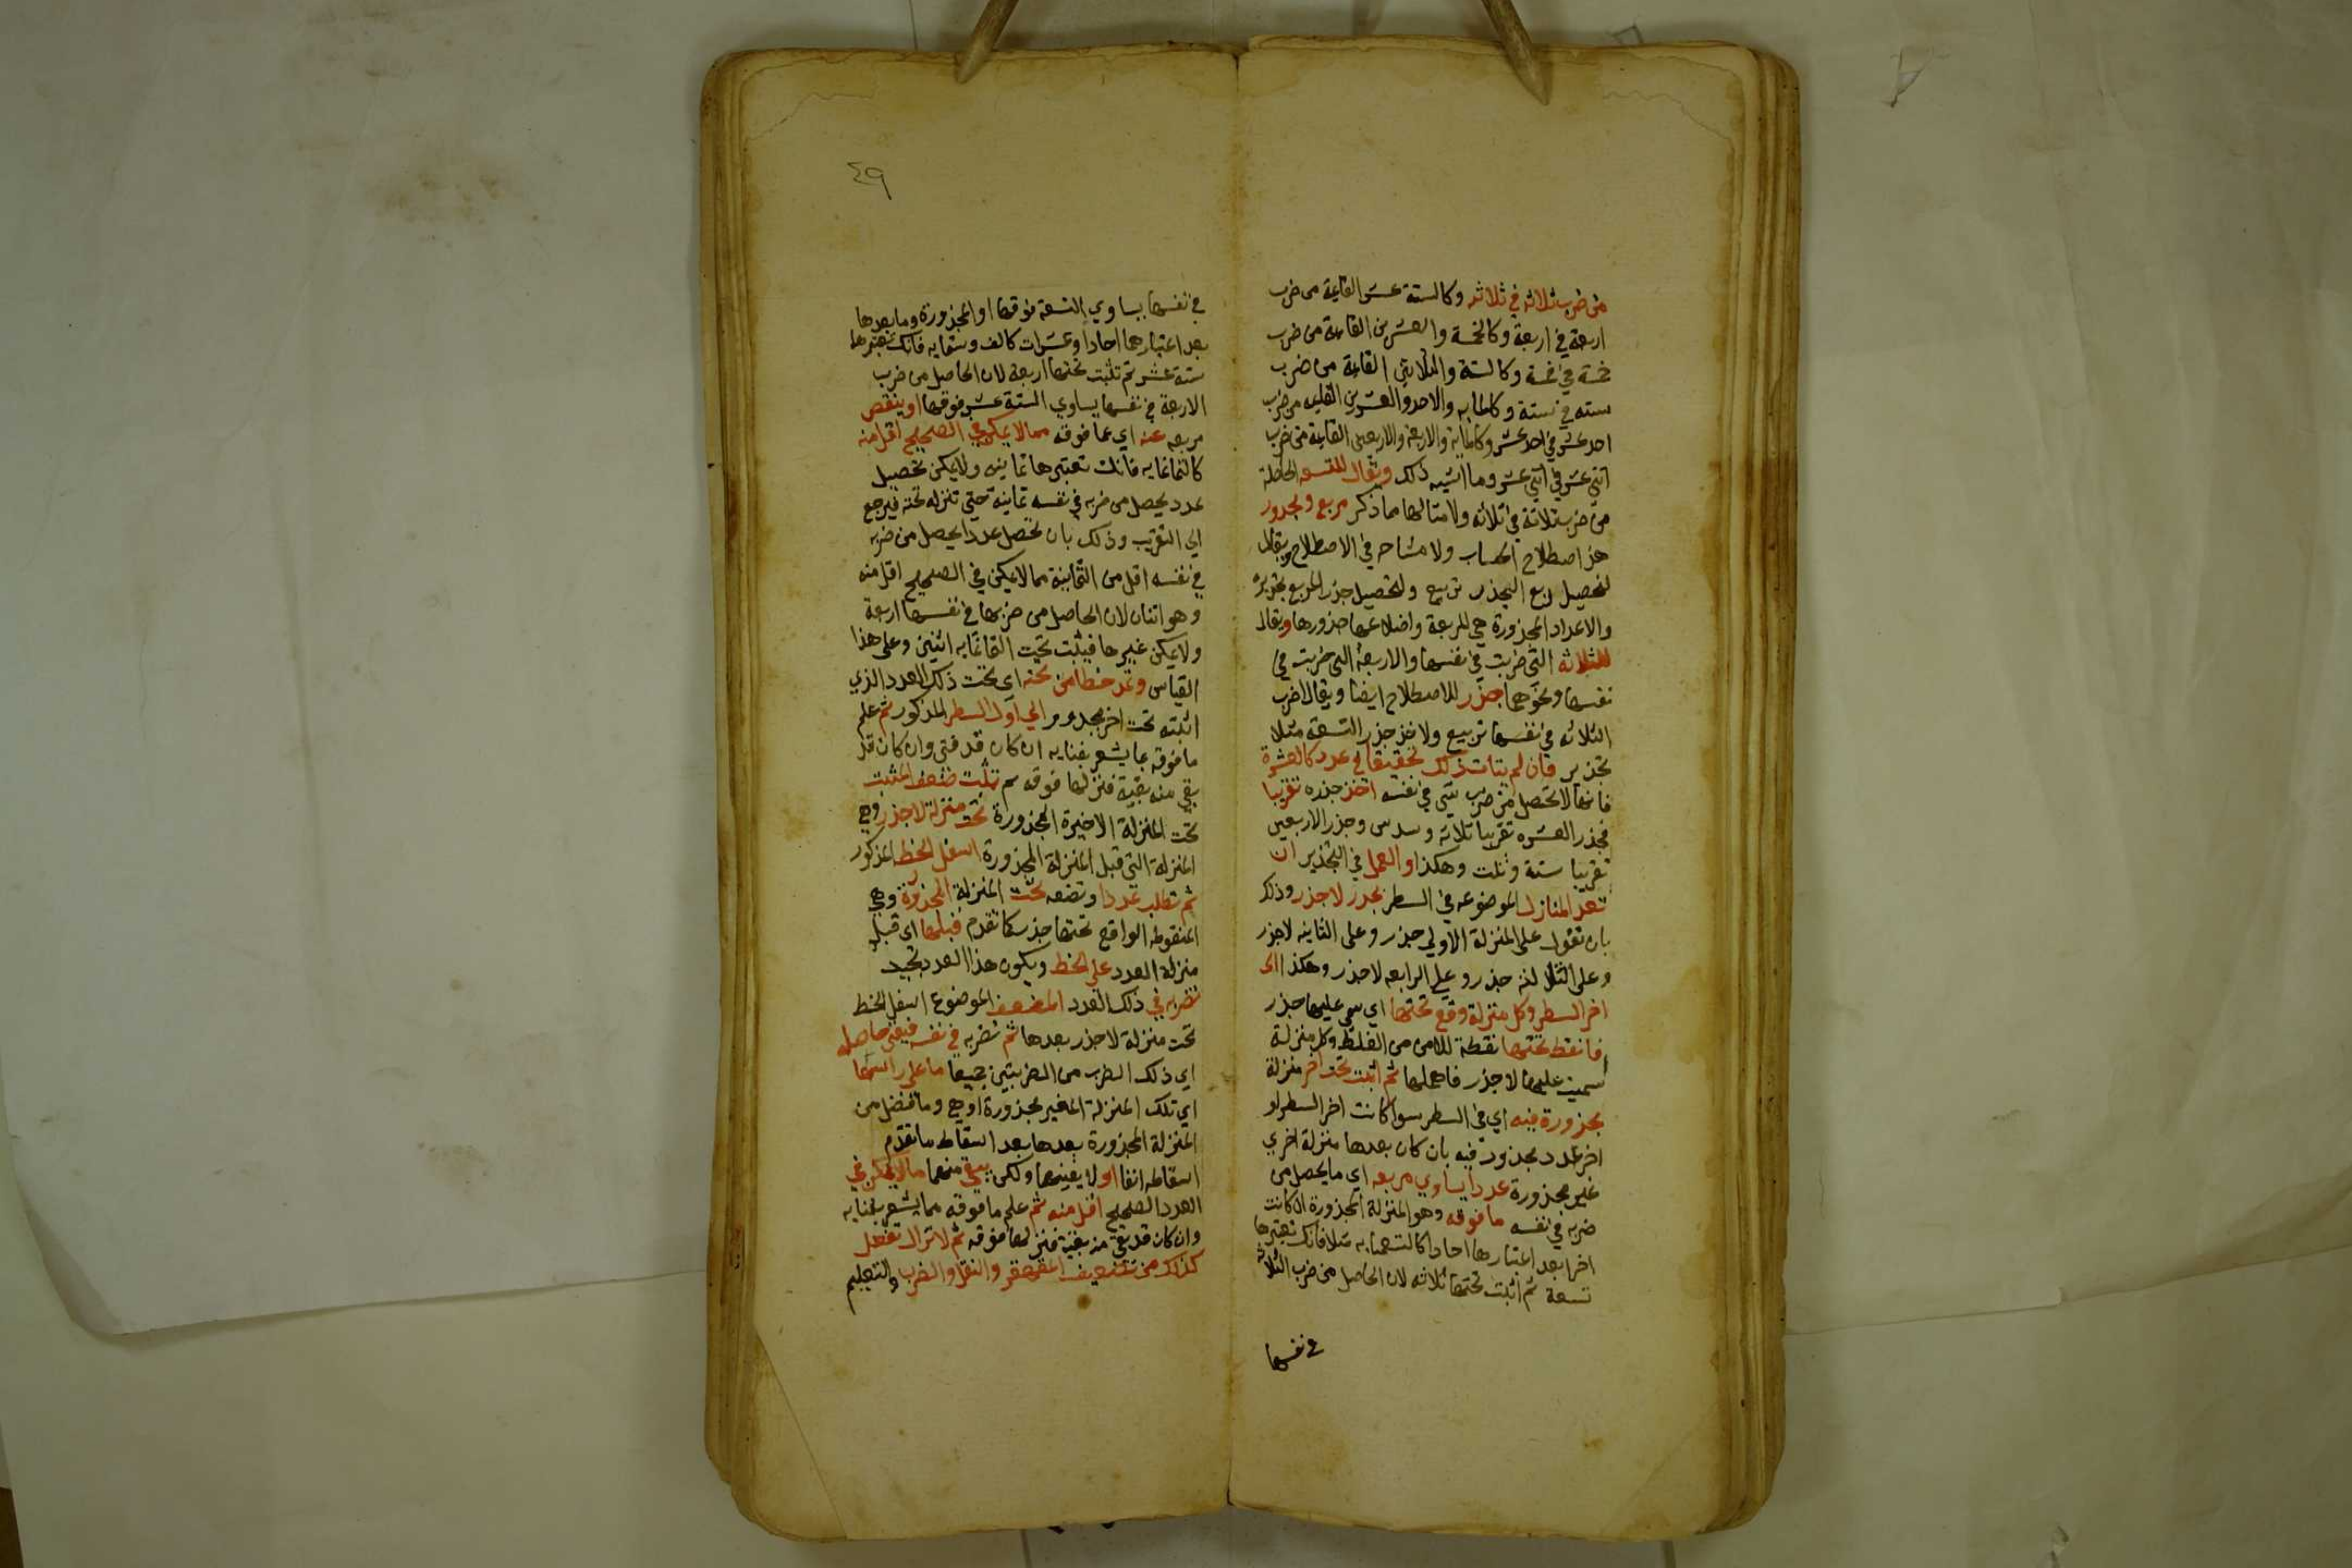 من ضرب ثلاثه في ثلاثه وكالستة عشر القايمة من ضرب
اربعة في اربعة وكالخمسة والعشرين القايمة من ضرب
خمسة في خمسة وكالستة والثلاثين القايمة من ضرب
سته في ستة وكالمايه والاحد والعشرين القايمه من ضرب
احد عشر في احد عشر وكالماية والاربعة والاربعين القايمة من ضرب
اثني عشر في اثني عشر وما اشبه ذلك ويقال للتسعه الحاصلة
من ضرب ثلاثة في ثلاثه ولامثالها مما ذكر مربع ومجدور
هذا اصطلاح الحساب ولا مشاحه في الاصطلاح ويقال
لتحصيل ربع الجذر تربيع ولتحصيل جذر المربع تجذير
والاعداد المجذورة هي المربعة واضلاعها جذورها ويقال
للثلاثه التي ضربت في نفسها والاربعة التي ضربت في
نفسها ونحوهما جذر للاصطلاح ايضا ويقال لضرب
الثلاثه في نفسها تربيع ولاخذ جذر التسعة مثلا
تجذير فان لم يتات ذلك تحقيقا في عدد كالعشرة
فانها لا تحصل من ضرب شي في نفسه اخذ جذره تقريبا
فجذر العشره تقريبا ثلاثه وسدس وجذر الاربعين
تقريبا ستة وثلث وهكذا والعمل في التجذير ان
تعد المنازل الموضوعه في السطر بجذر لا جذر وذلك
بان تقول على المنزلة الاولي جذر وعلى الثانيه لا جذر
وعلى الثالثه جذر وعلي الرابعه لا جذر وهكذا الى
اخر السطر وكل منزلة وقع تحتها اي سمى عليها جذر
فانقط تحتها نقطة للامن من الغلط وكل منزلة
سميت عليها لا جذر فاهملها ثم اثبت تحت اخر منزلة
مجذورة فيه اي في السطر سوا كانت اخر السطر او
اخر عدد مجذور فيه بان كان بعدها منزلة اخري
غير مجذورة عددا يساوي مربعه اي ما يحصل من
ضربه في نفسه ما فوقه وهو المنزلة المجذورة ان كانت
اخرا بعد اعتبارها احادا كالتسعمايه مثلا فانك تعتبرها
تسعة ثم اثبت تحتها ثلاثه لان الحاصل من ضرب الثلاثه
في نفسها
٤٩
في نفسها يساوي التسعة فوقها او المجذورة وما بعدها
بعد اعتبارهما احادا وعشرات كالف وستمايه فانك تعتبرها
ستة عشر ثم تثبت تحتها اربعة لان الحاصل من ضرب
الاربعة في نفسها يساوي الستة عشر فوقها او ينقص
مربعه عنه اي عما فوقه مما لا يمكن في الصحيح اقل منه
كالثمانمايه فانك تعتبرها ثمانيه ولا يمكن تحصيل
عدد يحصل من ضربه في نفسه ثمانية حتي تنزله تحته فيرجع
الي التقريب وذلك بان تحصل عددا يحصل من ضربه
في نفسه اقل من الثمانية مما لا يمكن في الصحيح اقل منه
وهو اثنان لان الحاصل من ضربها في نفسها اربعة
ولا يمكن غيرها فيثبت تحت الثمانمايه اثنين وعلى هذا
القياس وتمد خطا من تحته اي تحت ذلك العدد الذي
اثبته تحت اخر مجذور الي اول السطر المذكور ثم علم
ما فوقه بما يشعر بفنايه ان كان قد فني وان كان قد
بقي منه بقية فنزلها فوقه ثم تثبت ضعف المثبت
تحت المنزلة الاخيرة المجذورة تحت منزلة لا جذر وهي
المنزلة التي قبل المنزلة المجذورة اسفل الخط المذكور
ثم تطلب عددا وتضعه تحت المنزلة المجذورة وهي
المنقوطه الواقع تحتها جذر كما تقدم قبلها اي قبل
منزلة العدد على الخط ويكون هذا العدد بحيث
تضربه في ذلك العدد المضعف الموضوع اسفل الخط
تحت منزلة لا جذر بعدها ثم تضربه في نفسه فيفني حاصله
اي ذلك الضرب من الضربتين جميعا ما على راسها
اي تلك المنزلة الغير مجذورة او هي وما فضل من
المنزلة المجذورة بعدها بعد اسقاط ما تقدم
اسقاطه انفا او لا يفنيها ولكن يبقى منها ما لا يمكن في
العدد الصحيح اقل منه ثم علم ما فوقه مما يشعر بفنايه
وان كان قد بقي منه بقية فنزلها فوقه ثم لا تزال تفعل
كذلك من تضعيف القهقر والنقل والضرب والتعليم